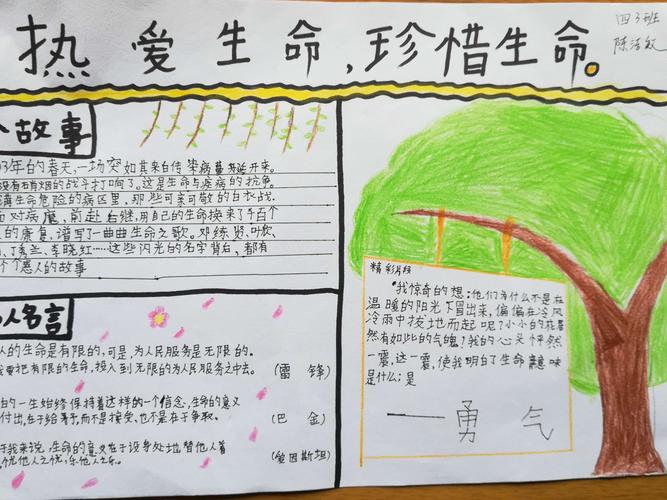 热爱生命,珍惜生命。
四3班
陈洁
故事
3年的春天,一场突如其来的传染病蔓延开来。
没有硝烟的战斗打响了。这是生命与疾病的抗争。
满生命危险的病区里,那些可亲可敬的白衣战
面对病魔,前赴后继,用自己的生命换来了千百个
的康复,谱写了一曲曲生命之歌。邓练贤、叶欣
、丁秀兰、李晓红……这些闪光的名字背后,都有
个个感人的故事
人名言
人的生命是有限的,可是,为人民服务是无限的。
我要把有限的生命,投入到无限的为人民服务之中去。
(雷 锋)
的一生始终保持着这样的一个信念,生命的意义
付出,在于给予,而不是接受,也不是在于争取。
(巴 金)
于我来说,生命的意义在于设身处地替他人着
忧他人之忧,乐他人之乐。
(爱因斯坦)
精彩片段
“我惊奇的想:他们为什么不是在
温暖的阳光下冒出来,偏偏在冷风
冷雨中拔地而起呢?小小的花
然有如此的气魄!我的心头怦然
一震,这一震,使我明白了生命意味
是什么;是
——勇 气